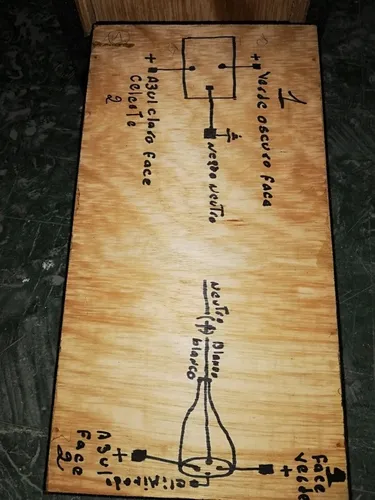 1
+ Verde obscuro faca
+ Azul claro face
celeste
2
Negro Neutro
Neutro Blanco
(+) blanco
1
face
verde
+
+
Azul
Face
2